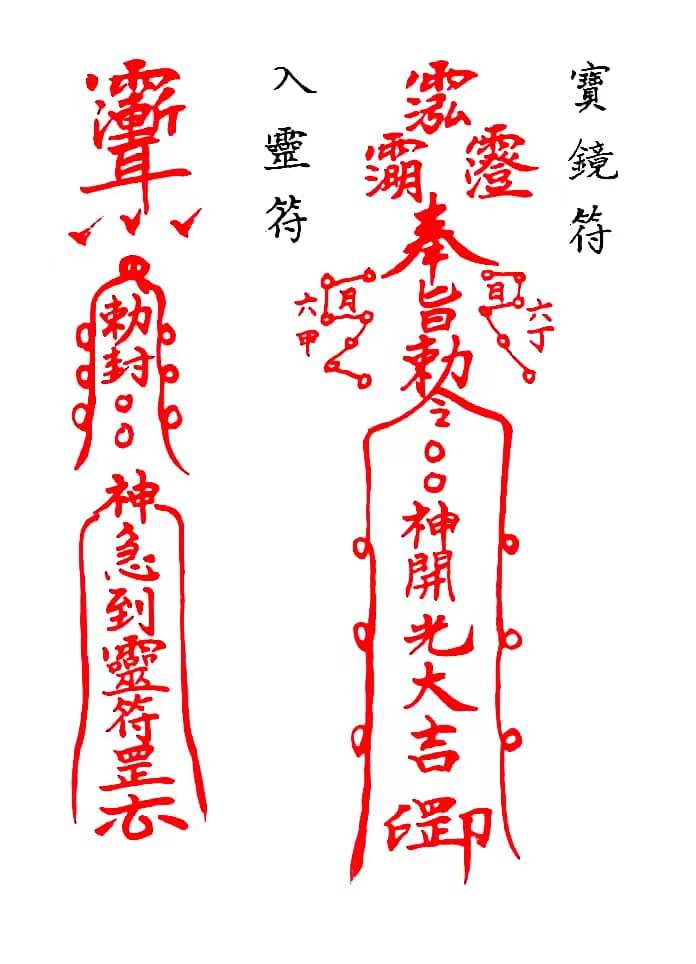 寶鏡符
奉旨勅令○○神開光大吉
日
六丁
月
六甲
入靈符
勅封○○
神急到靈符罡